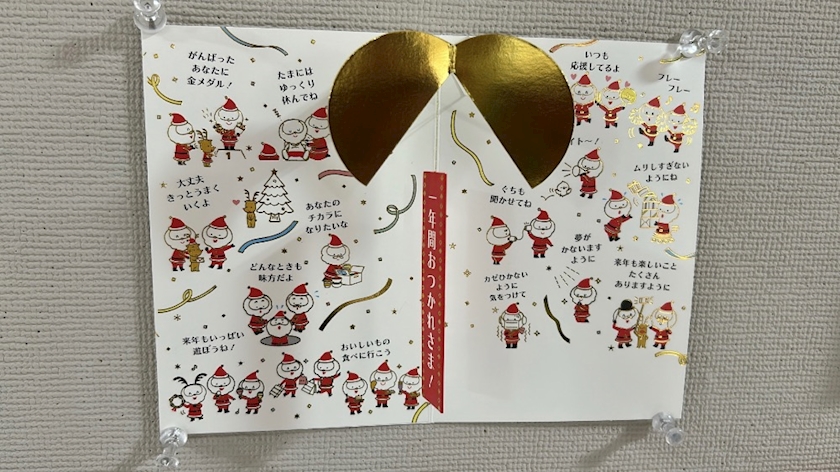 がんばった
あなたに
金メダル！
たまには
ゆっくり
休んでね
大丈夫
きっとうまく
いくよ
あなたの
チカラに
なりたいな
どんなときも
味方だよ
来年もいっぱい
遊ぼうね！
おいしいもの
食べに行こう
一年間おつかれさま！
いつも
応援してるよ
フレー
フレー
イト〜！
ムリしすぎない
ようにね
ぐちも
聞かせてね
夢が
かないます
ように
カゼひかない
ように
気をつけて
来年も楽しいこと
たくさん
ありますように